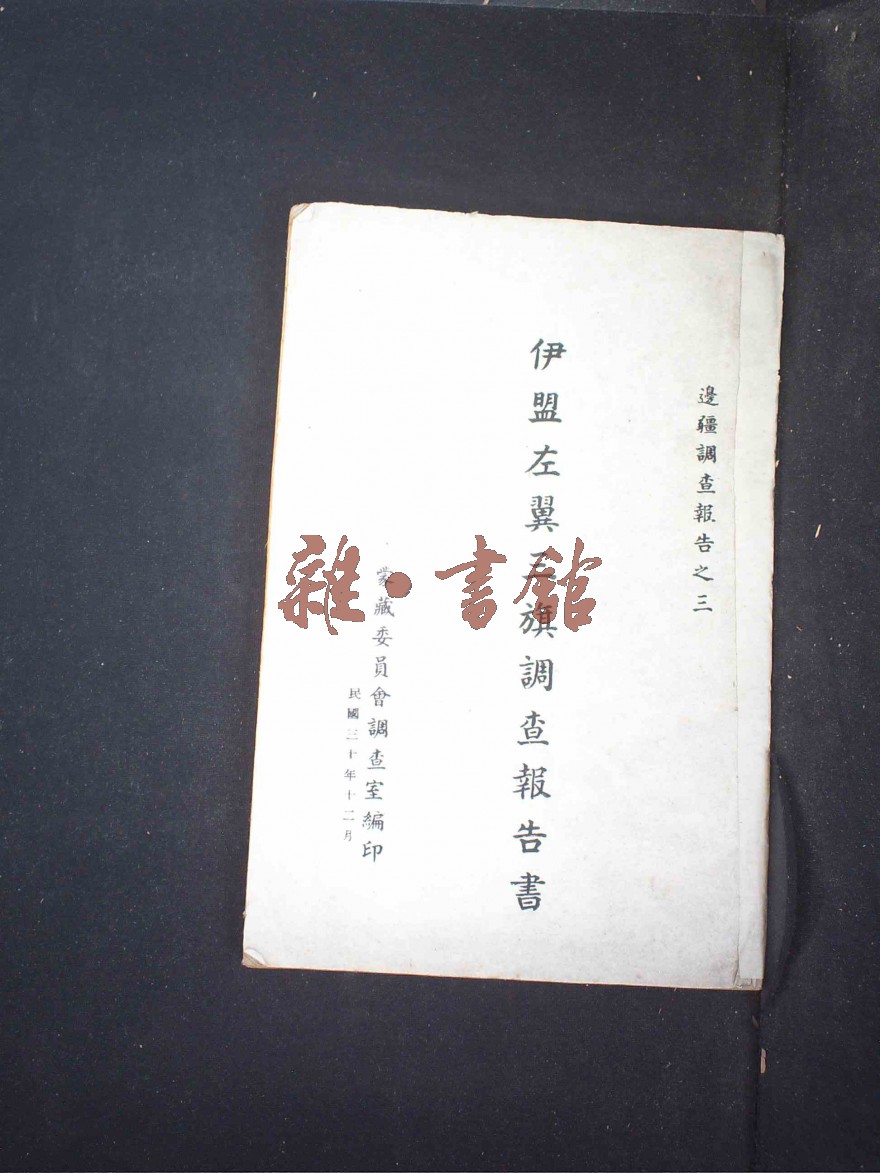 邊疆調查報告之三
伊盟左翼三旗調查報告書
蒙藏委員會調查室編印
民國三十年十二月
雜·書館